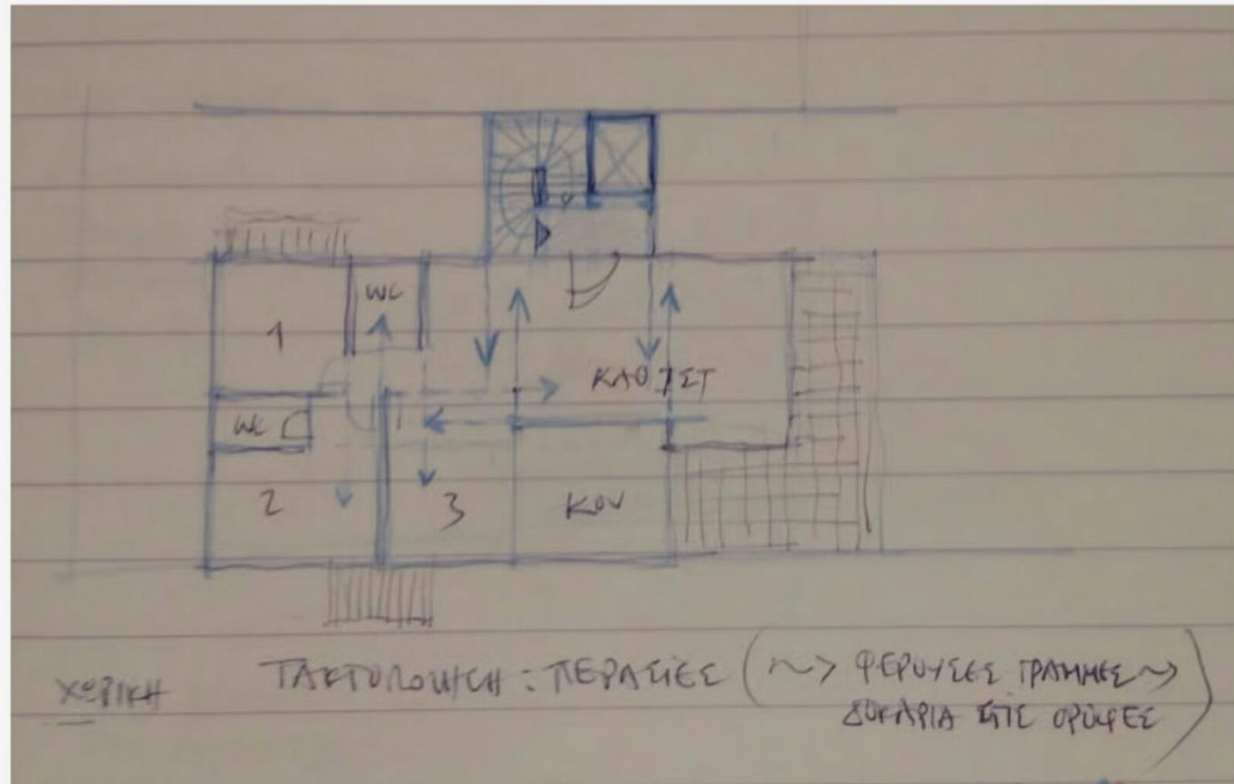 WC
1
ΚΑΘΙΣΤ
WC
2
3
ΚΟΥ
ΧΩΡΙΚΗ ΤΑΚΤΟΠΟΙΗΣΗ : ΠΕΡΑΣΙΕΣ ( ~> ΦΕΡΟΥΣΕΣ ΓΡΑΜΜΕΣ ~>
ΔΟΚΑΡΙΑ ΣΤΙΣ ΟΡΟΦΕΣ )